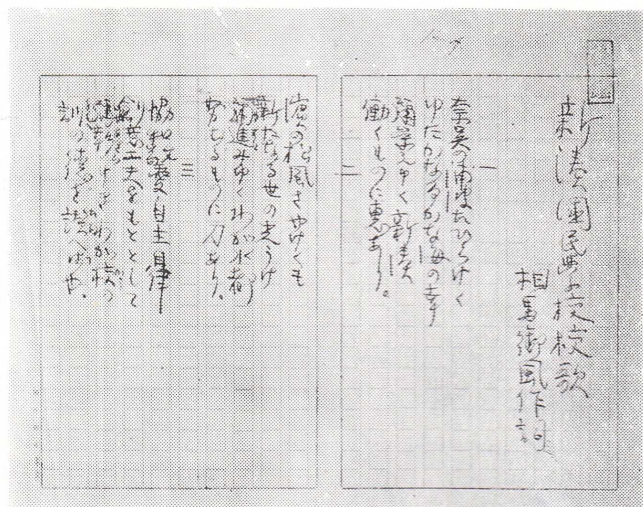 新湊国民学校校歌
相馬御風作詞
一
奈呉の浦はたひらけく
ゆたかなるかな海の幸
弥栄えゆく新湊
働くものに恵あり。
二
松風さやけくも
新たなる世の光うけ
進みゆくわが水都
力あり。
三
協和敬愛自主自律
創意工夫をもととして
わが校の
訓の徳を讃へ